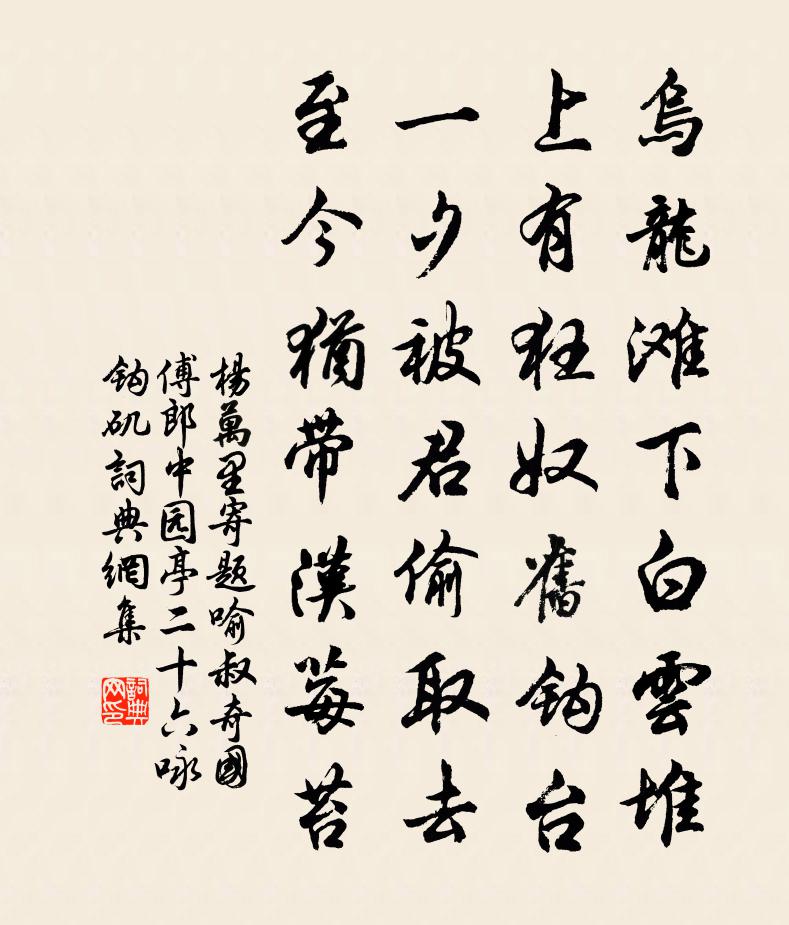 烏龍滩下白雲堆
上有狂奴舊鈎台
一夕被君偷取去
至今猶帶漢莓苔
楊萬里寄题喻叔奇國
傅郎中园亭二十六咏
鈎矶詞典網集
詞典网印